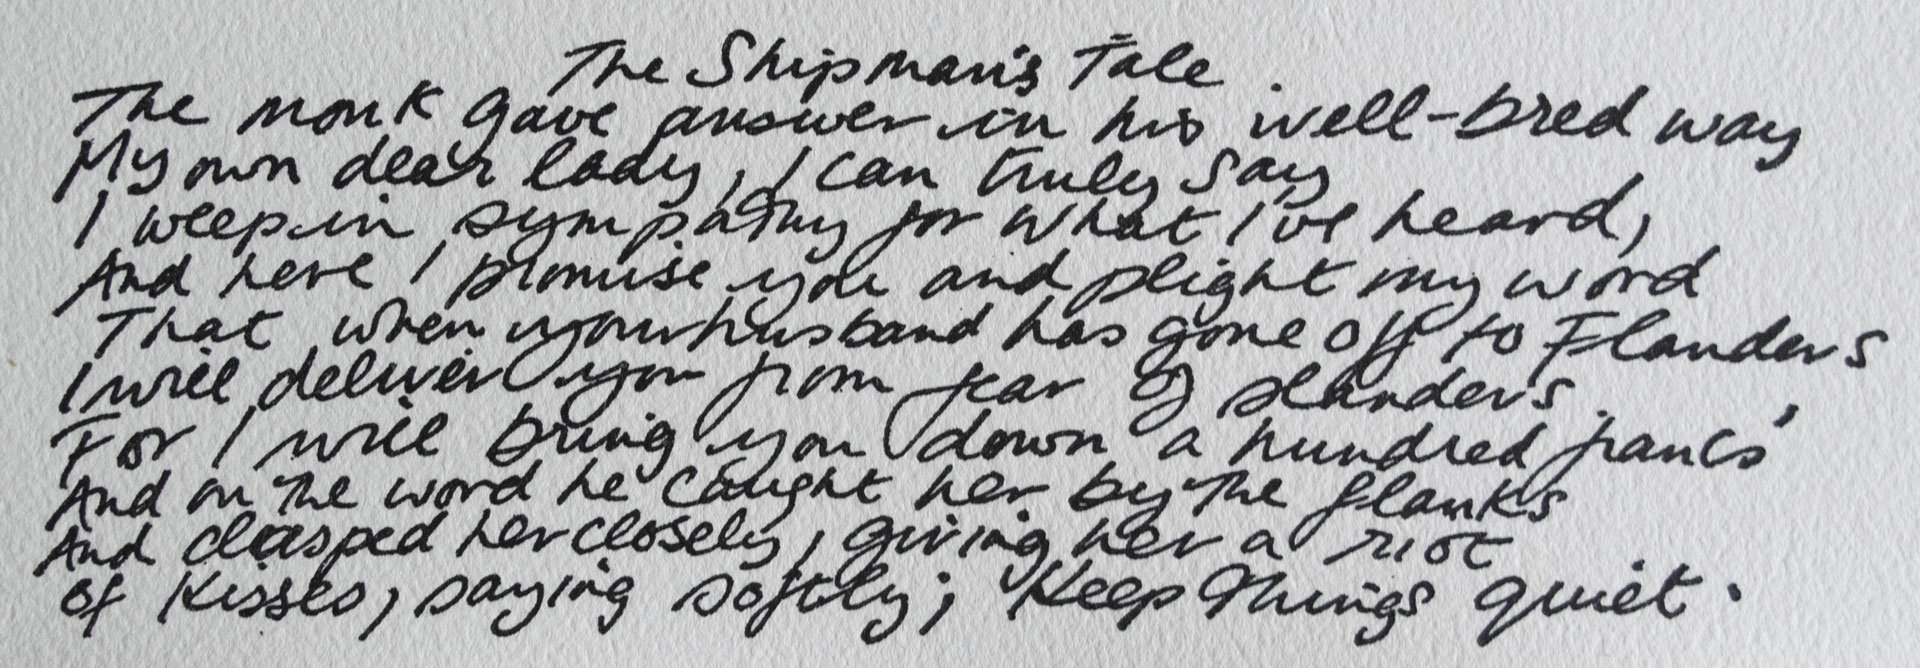 The Shipman's Tale
The monk gave answer in his well-bred way
My own dear lady, I can truly say
I weep in sympathy for what I've heard,
And here I promise you and plight my word
That when your husband has gone off to Flanders
I will deliver you from fear of slanders.
For I will bring you down a hundred francs'
And on the word he caught her by the flanks
And clasped her closely, giving her a riot
of Kisses, saying softly; 'Keep things quiet.